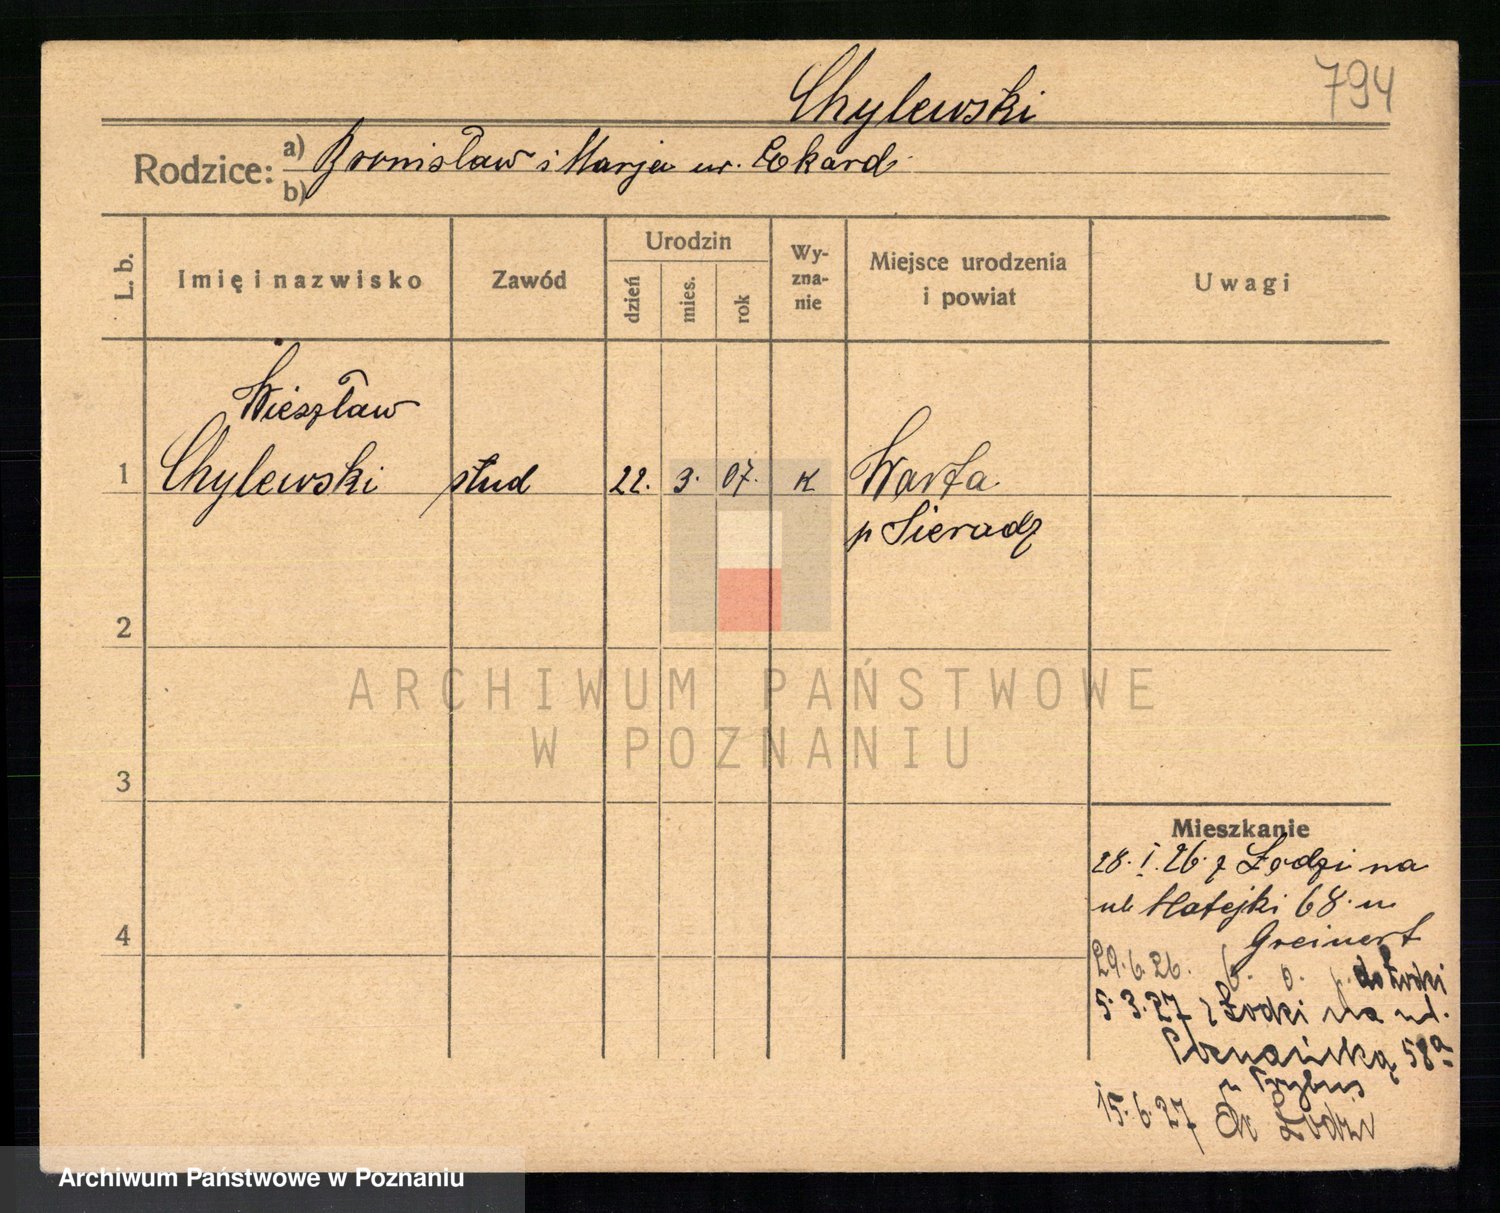 794
Chylewski
Rodzice: a) Bronisław i Marja ur. Eckard
b)
L. b.
Imię i nazwisko
Zawód
Urodzin
dzień
mies.
rok
Wy-
zna-
nie
Miejsce urodzenia
i powiat
Uwagi
Wieszław
1 Chylewski stud 22. 3. 07. K Warta
p Sieradz
2
ARCHIWUM PAŃSTWOWE
W POZNANIU
3
Mieszkanie
28. I. 26. z Łodzi na
ul Matejki 68. u
4
Greinert
29. 6. 26. do Łodzi
5. 3. 27 z Łodzi na ul.
Poznańską 58a
u Trybus
15. 6. 27 do Łodzi
Archiwum Państwowe w Poznaniu